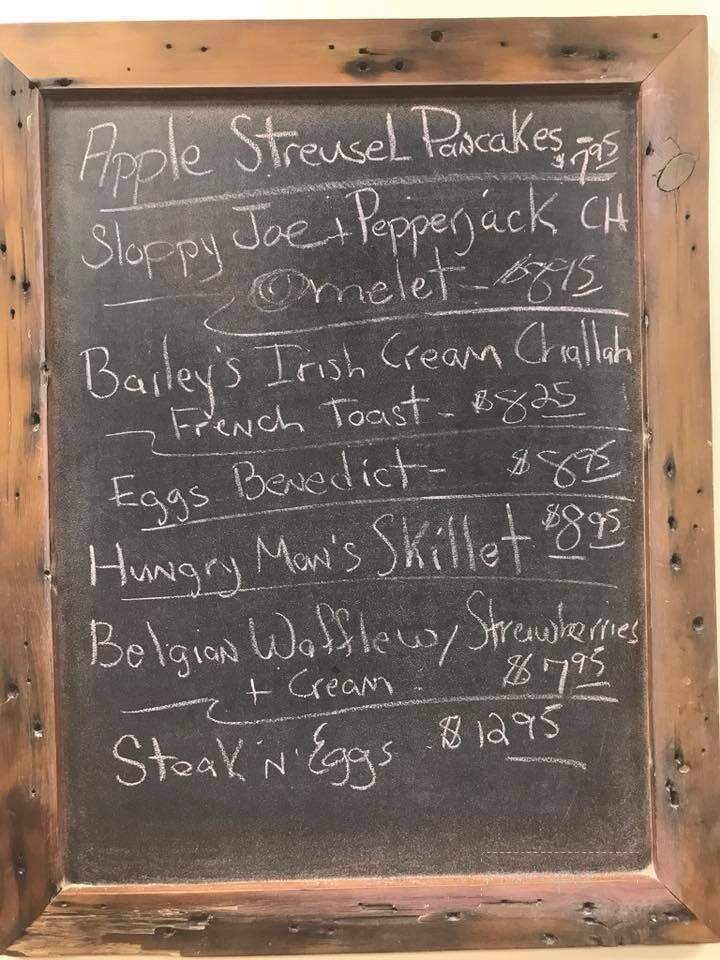 Apple Streusel Pancakes $7.95
Sloppy Joe + Pepperjack CH
Omelet - $8.95
Bailey's Irish Cream Challah
French Toast - $8.25
Eggs Benedict - $8.95
Hungry Man's Skillet $8.95
Belgian Waffle w/ Strawberries
+ Cream $7.95
Steak 'N' Eggs $12.95